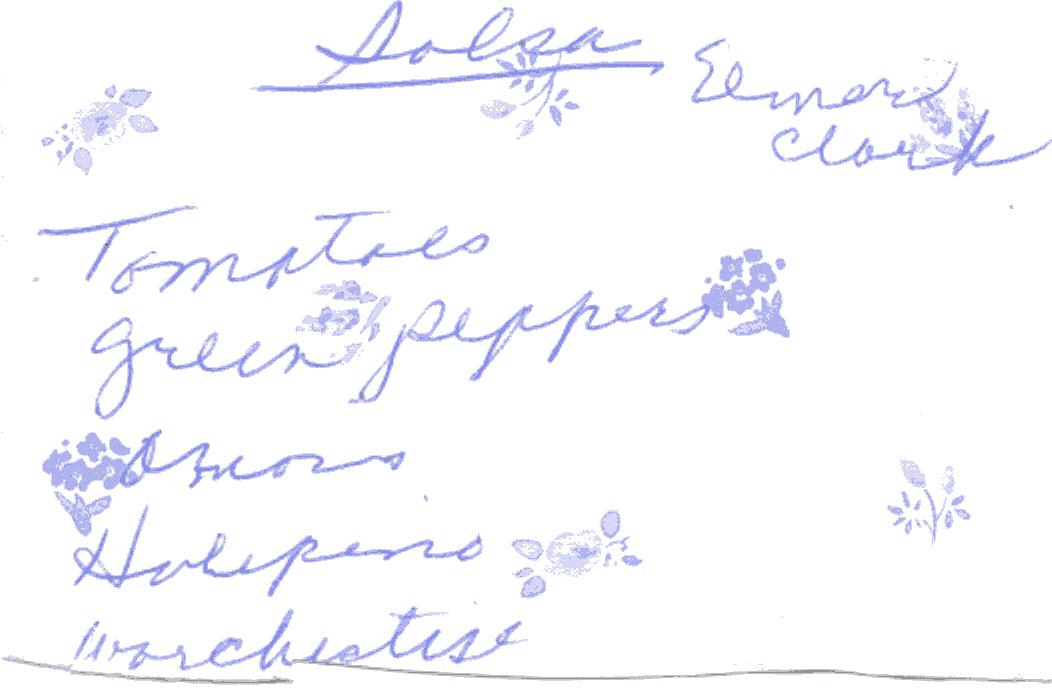 Salsa
Elmer
Clark
Tomatoes
green peppers
Onions
Holepeno
worchestise